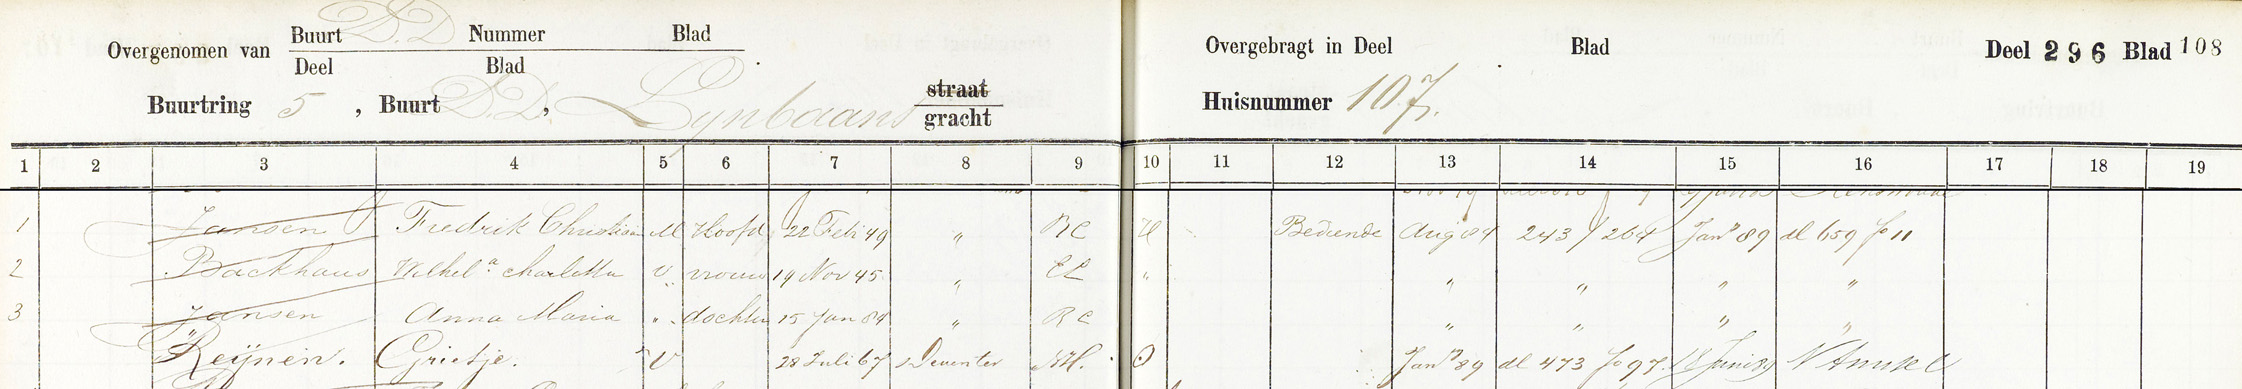 Overgenomen van Buurt D.D Nummer Blad
Deel Blad
Overgebragt in Deel Blad
Deel 296 Blad 108
Buurtring 5, Buurt D.D, Lynbaans straat
gracht
Huisnummer 107.
1 2 3 4 5 6 7 8 9 10 11 12 13 14 15 16 17 18 19
1 Jansen Fredrik Christiaan M Hoofd 22 Feb 49 " RC H Bediende Aug 84 243/264 Jan 89 dl 659 fo 11
2 Backhaus Wilhela Charlotta V vrouw 19 Nov 45 " EL " " " " "
3 Jansen Anna Maria " dochter 15 Jan 84 " RC " " " "
" Reijnen. Grietje. V 28 Juli 67 Deventer NH. O Jan 89 dl 473 fo 97. 18 Juni 89 N Amstel